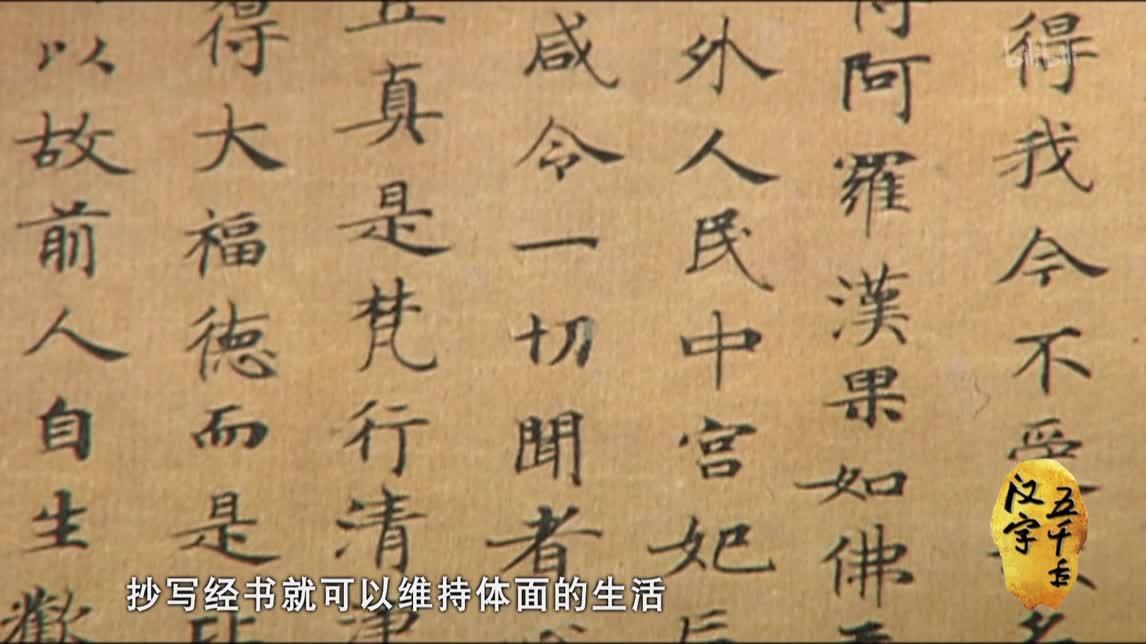 得我今不受
得阿羅漢果如佛
外人民中宮妃后
咸令一切聞者
五真是梵行清淨
得大福德而是
以故前人自生歡
抄写经书就可以维持体面的生活
汉字
五千年
bilibili